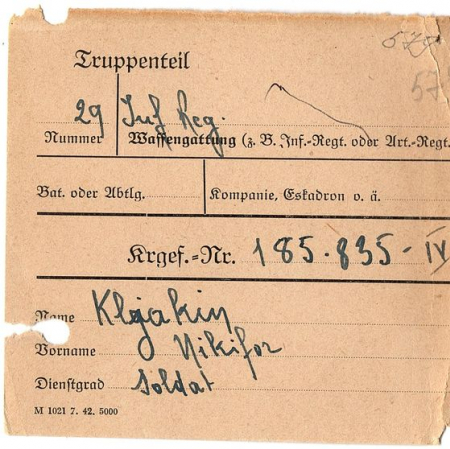 575
57
Truppenteil
29 Inf Reg.
Nummer Waffengattung (z. B. Inf.-Regt. oder Art.-Regt.
Bat. oder Abtlg. Kompanie, Eskadron o. ä.
Krgef.-Nr. 185.835-IV
Name Kljakin
Vorname Nikifor
Dienstgrad Soldat
M 1021 7. 42. 5000